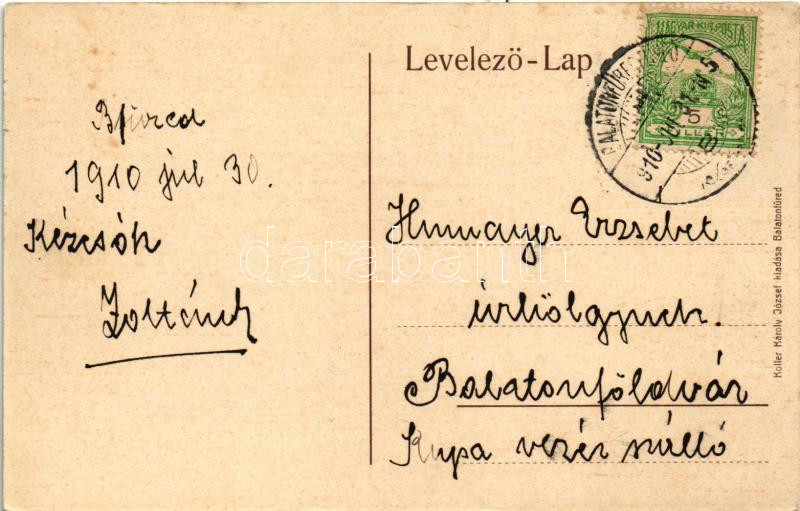 Levelező-Lap
MAGYAR KIR. POSTA
5
FILLÉR
BALATONFÜRED
910 JUL 31
Bfüred
1910 júl 30.
Kézcsók
Zoltántól
Erzsébet
úrhölgynek.
Balatonföldvár
Kupa vezér szálló
Koller Károly József kiadása Balatonfüred
darabanth